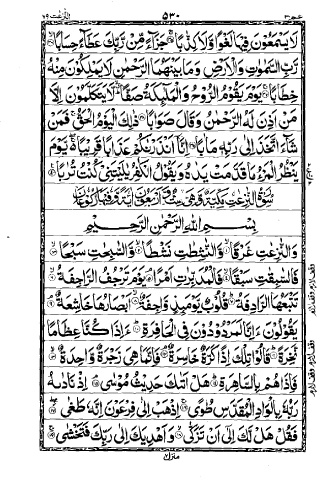 النّٰزعٰت ٧٩
٥٣٠
عم ٣٠
لَا يَسْمَعُوْنَ فِيْهَا لَغْوًا وَّلَا كِذّٰبًا ۞ جَزَآءً مِّنْ رَّبِّكَ عَطَآءً حِسَابًا ۞
رَّبِّ السَّمٰوٰتِ وَالْاَرْضِ وَمَا بَيْنَهُمَا الرَّحْمٰنِ لَا يَمْلِكُوْنَ مِنْهُ
خِطَابًا ۞ يَوْمَ يَقُوْمُ الرُّوْحُ وَالْمَلٰٓئِكَةُ صَفًّا ۙ لَّا يَتَكَلَّمُوْنَ اِلَّا
مَنْ اَذِنَ لَهُ الرَّحْمٰنُ وَقَالَ صَوَابًا ۞ ذٰلِكَ الْيَوْمُ الْحَقُّ ۚ فَمَنْ
شَآءَ اتَّخَذَ اِلٰى رَبِّهٖ مَاٰبًا ۞ اِنَّآ اَنْذَرْنٰكُمْ عَذَابًا قَرِيْبًا ۚ يَّوْمَ
يَنْظُرُ الْمَرْءُ مَا قَدَّمَتْ يَدٰهُ وَيَقُوْلُ الْكٰفِرُ يٰلَيْتَنِيْ كُنْتُ تُرٰبًا ۞
سورة النّٰزعٰت مكية وهي ست واربعون اية وفيها ركوعان
بِسْمِ اللّٰهِ الرَّحْمٰنِ الرَّحِيْمِ
وَالنّٰزِعٰتِ غَرْقًا ۞ وَّالنّٰشِطٰتِ نَشْطًا ۞ وَّالسّٰبِحٰتِ سَبْحًا ۞
فَالسّٰبِقٰتِ سَبْقًا ۞ فَالْمُدَبِّرٰتِ اَمْرًا ۞ يَوْمَ تَرْجُفُ الرَّاجِفَةُ ۞
تَتْبَعُهَا الرَّادِفَةُ ۞ قُلُوْبٌ يَّوْمَئِذٍ وَّاجِفَةٌ ۞ اَبْصَارُهَا خَاشِعَةٌ ۞
يَقُوْلُوْنَ ءَاِنَّا لَمَرْدُوْدُوْنَ فِي الْحَافِرَةِ ۞ ءَاِذَا كُنَّا عِظَامًا
نَّخِرَةً ۞ قَالُوْا تِلْكَ اِذًا كَرَّةٌ خَاسِرَةٌ ۞ فَاِنَّمَا هِيَ زَجْرَةٌ وَّاحِدَةٌ ۞
فَاِذَا هُمْ بِالسَّاهِرَةِ ۞ هَلْ اَتٰىكَ حَدِيْثُ مُوْسٰى ۞ اِذْ نَادٰىهُ
رَبُّهٗ بِالْوَادِ الْمُقَدَّسِ طُوًى ۞ اِذْهَبْ اِلٰى فِرْعَوْنَ اِنَّهٗ طَغٰى ۞
فَقُلْ هَلْ لَّكَ اِلٰٓى اَنْ تَزَكّٰى ۞ وَاَهْدِيَكَ اِلٰى رَبِّكَ فَتَخْشٰى ۞
منزل